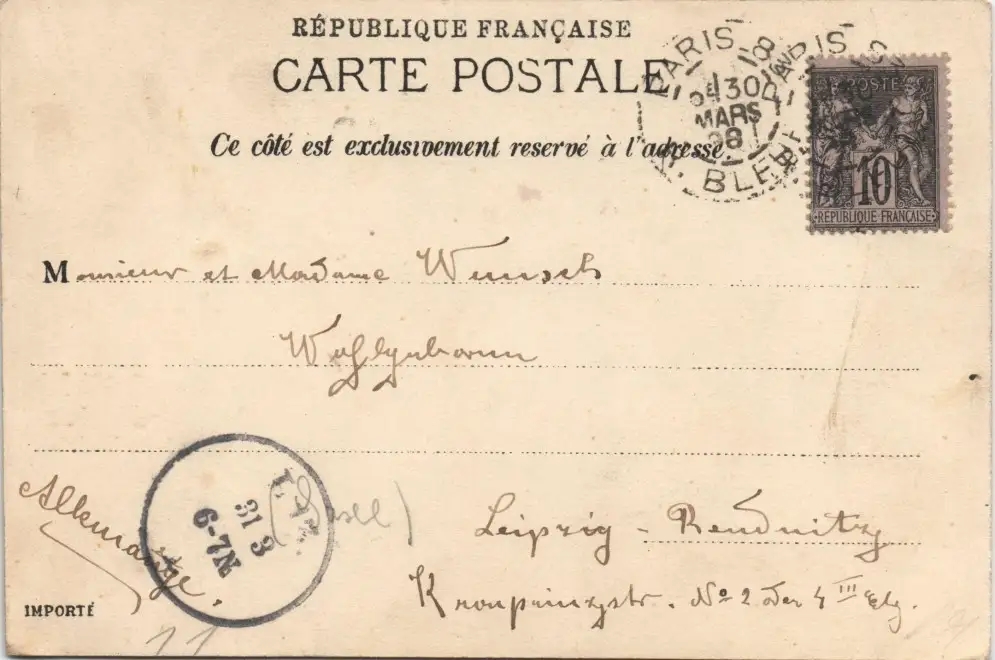 RÉPUBLIQUE FRANÇAISE
CARTE POSTALE
Ce côté est exclusivement reservé à l'adresse.
PARIS 8
30
MARS
98
BLEUE
PARIS
POSTE
10
RÉPUBLIQUE FRANÇAISE
Monsieur et Madame Wunsch
Wohlgeboren
Allemagne.
31 3
6-7N
Leipzig - Reudnitz
Kronprinzstr. No 2 oder 4 III Etg.
IMPORTÉ
11